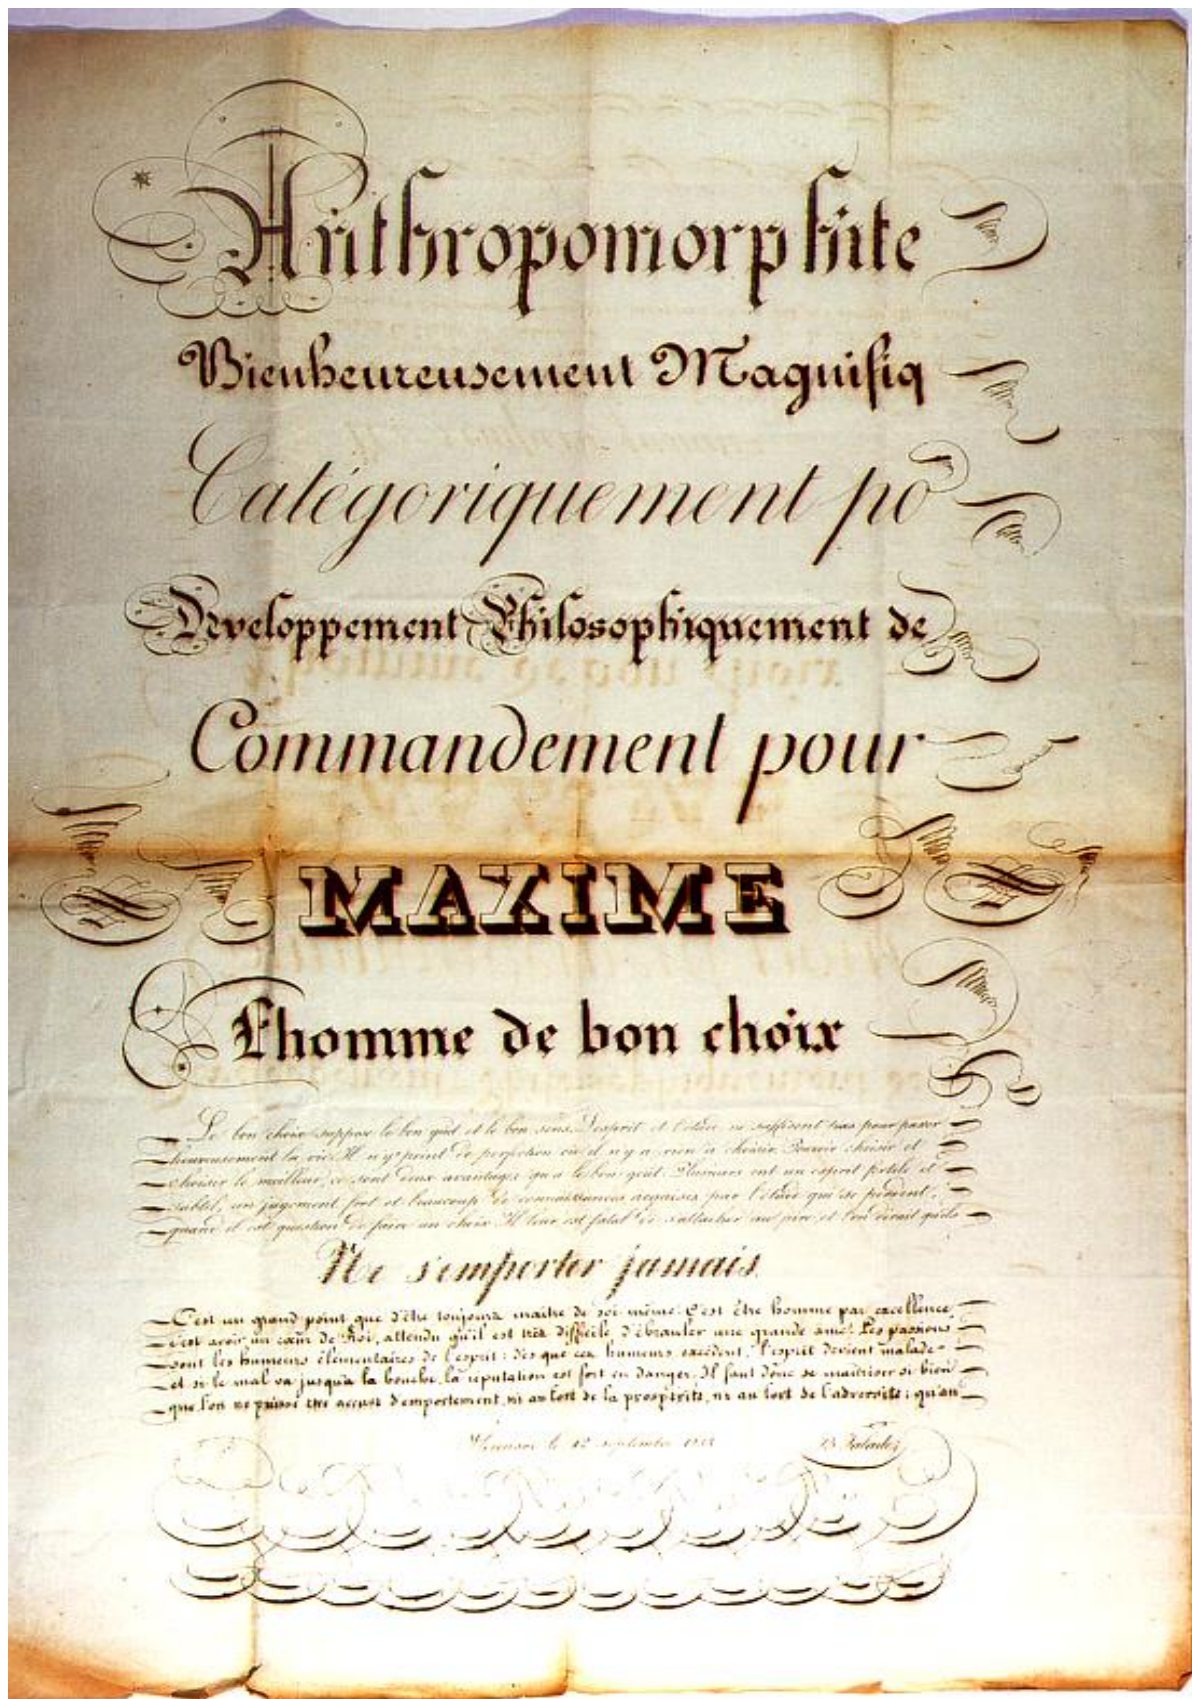 Anthropomorphite
Bienheureusement Magnifiq
Catégoriquement po
Developpement Philosophiquement de
Commandement pour
MAXIME
L'homme de bon choix
Le bon choix suppose le bon goût et le bon sens. L'esprit et l'étude ne suffisent pas pour passer
heureusement la vie. Il n'y a point de perfection où il n'y a rien à choisir. Pouvoir choisir et
choisir le meilleur, ce sont deux avantages qu'a le bon goût. Plusieurs ont un esprit fertile et
subtil, un jugement fort et beaucoup de connaissances acquises par l'étude qui se perdent,
quand il est question de faire un choix. Il leur est fatal de s'attacher au pire et l'on dirait qu'ils
Ne s'emporter jamais.
C'est un grand point que d'être toujours maître de soi-même. C'est être homme par excellence
c'est avoir un cœur de Roi, attendu qu'il est très difficile d'ébranler une grande âme. Les passions
sont les humeurs élémentaires de l'esprit : dès que ces humeurs excèdent, l'esprit devient malade
et si le mal va jusqu'à la bouche, la réputation est fort en danger. Il faut donc se maîtriser si bien
que l'on ne puisse être accusé d'emportement, ni au fort de la prospérité, ni au fort de l'adversité ; qu'au
le 12 septembre